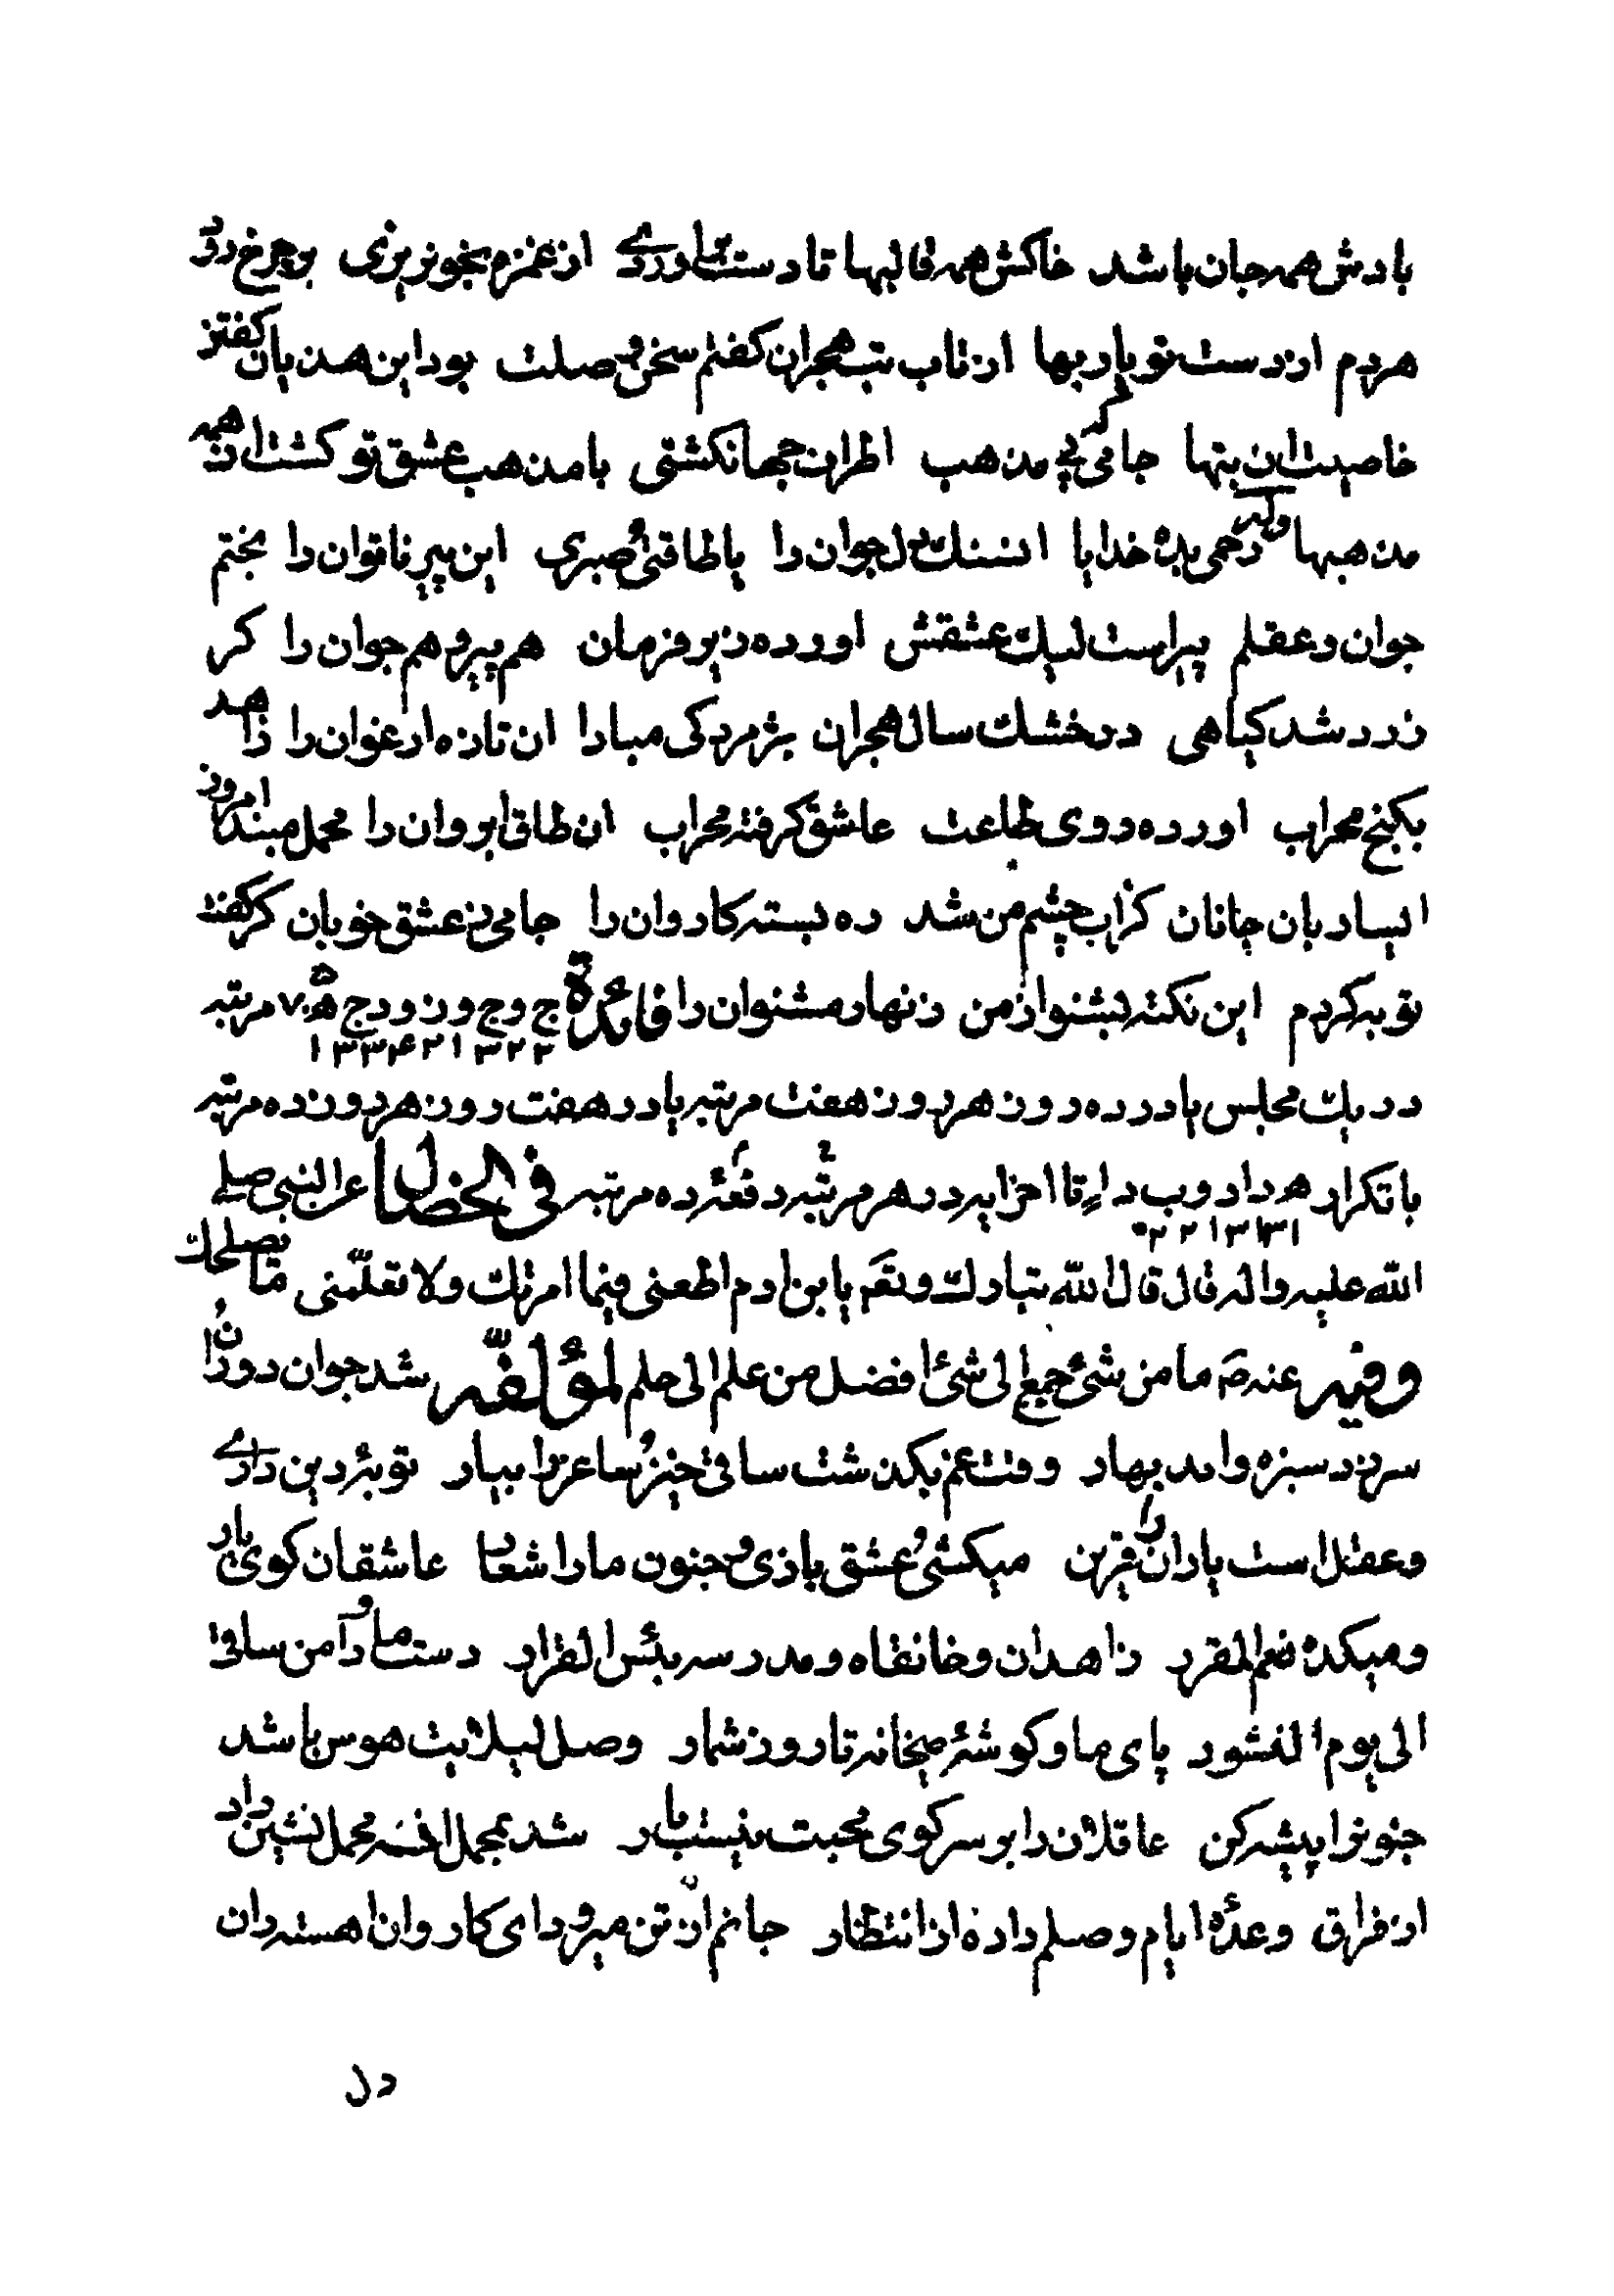 بادش همه جان باشد خاکش همه قالبها تا دست براوردی از غمزه بخونریزی بر چرخ رود
هردم از دست تو یاربها از تاب تب هجران گفتم سخن وصلت بود این هذیان گفتن
خاصیت ان تبها جامی که پی مذهب اطراف جهان گشتی با مذهب عشق تو گشت از همه
مذهبها وله رحمی بده خدایا ان سنک دل جوان را یا طاقتی و صبری این پیر ناتوان را بختم
جوان و عقلم پیر است لیک عشقش اورده زیر فرمان هم پیر و هم جوان را گر
زرد شد گیاهی در خشک سال هجران پژمردکی مبادا ان تازه ارغوان را زاهد
بکنج محراب اورده روی طاعت عاشق گرفته محراب ان طاق ابروان را محمل مبند امروز
ای ساربان جانان کز اب چشم من شد ره بسته کاروان را جامی ز عشق خوبان گر گفت
توبه کردم این نکته بشنو از من زنهار مشنو ان را فائدة ج و ج و ن و د ج ه ۷۰ مرتبه
در یک مجلس یا در ده روز هر روز هفت مرتبه یا در هفت روز هر روز ده مرتبه
با تکرار ه د ا د و ب د ا ء تا اخر ایه در هر مرتبه دفعهٔ ده مرتبه فی الخصال عن النبی صلی
الله علیه واله قال قال الله تبارک وتعم یا بن ادم اطعنی فیما امرتک ولا تعلّمنی ما یصلحک
وفیه عنه ص ما من شیء جمع الی شیء افضل من علم الی حلم لمؤلفه شد جوان دوران
سر زد سبزه وامد بهار وقت غم بگذشت ساقی خیز و ساغر را بیار توبهٔ دین داری
و عقل است یاران را قرین میکشی و عشق بازی و جنون ما را شعار عاشقان کوی یار
و میکده نعم المقر زاهدان و خانقاه و مدرسه بئس القرار دست ما و دامن ساقی
الی یوم النشور پای ما و گوشهٔ میخانه تا روز شمار وصل لیلایت هوس باشد
جنون را پیشه کن عاقلان را بر سر کوی محبت نیست بار شد بمحمل افسه محمل نشین داد
از فراق وعدهٔ ایام وصلم داده از انتظار جانم از تن میرود ای کاروان اهسته ران
دل